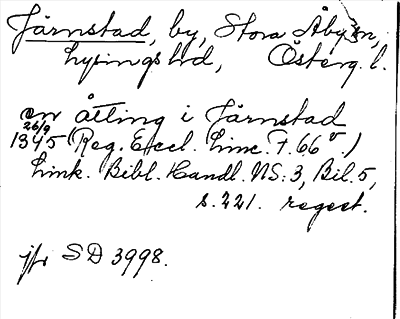 Järnstad, by, Stora Åby sn,
Lysings hd, Österg. l.
en åtting i Järnstad
26/9
1345 (Reg. Eccl. Linc. F. 66 v.)
Link. Bibl. Handl. NS: 3, Bil. 5,
s. 221. regest.
jfr SD 3998.